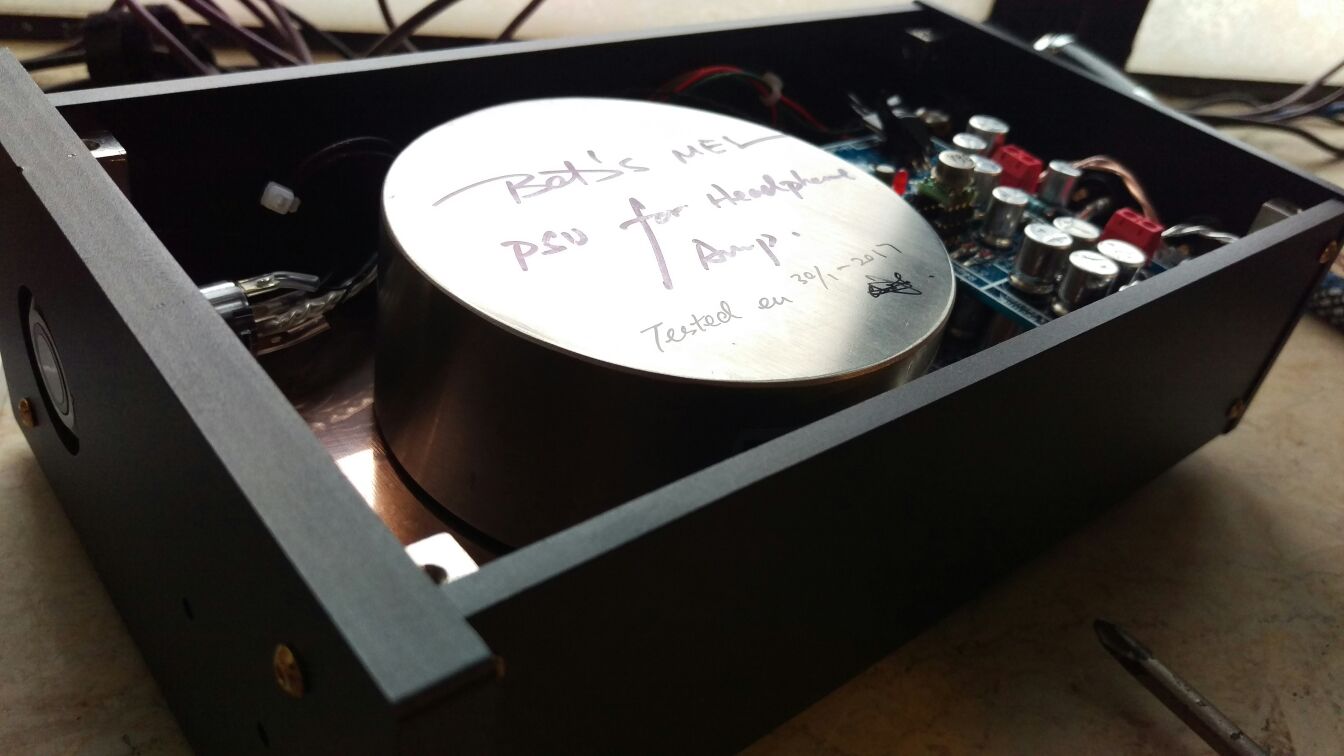 Bob's MEL
PSU for Headphone
Amp.
Tested on 30/1-2017